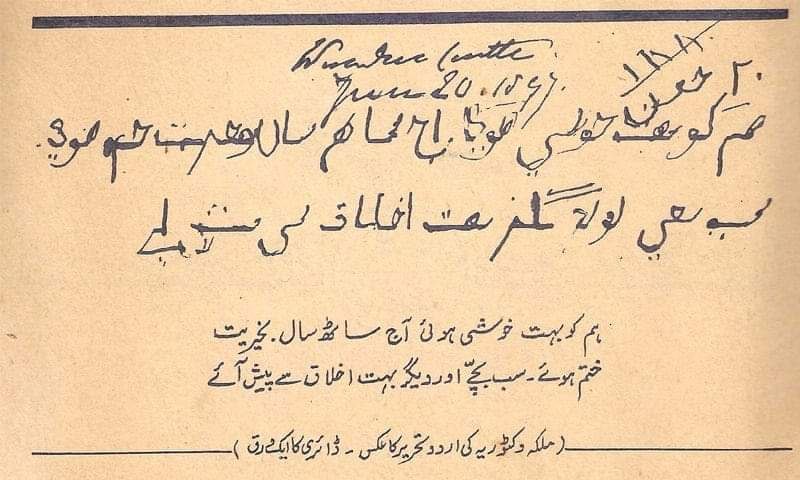 Windsor Castle
June 20. 1897.
۲۰ جون ۱۸۸
ہم کو بہت خوشی ہویا آج ساٹھ سال بخیریت ختم ہوے
سب بچے اور دیگر بہت اخلاق سے پیش آے
ہم کو بہت خوشی ہوئی آج ساٹھ سال بخیریت
ختم ہوئے۔ سب بچّے اور دیگر بہت اخلاق سے پیش آئے
(ملکہ وکٹوریہ کی اردو تحریر کا عکس ۔ ڈائری کا ایک ورق)